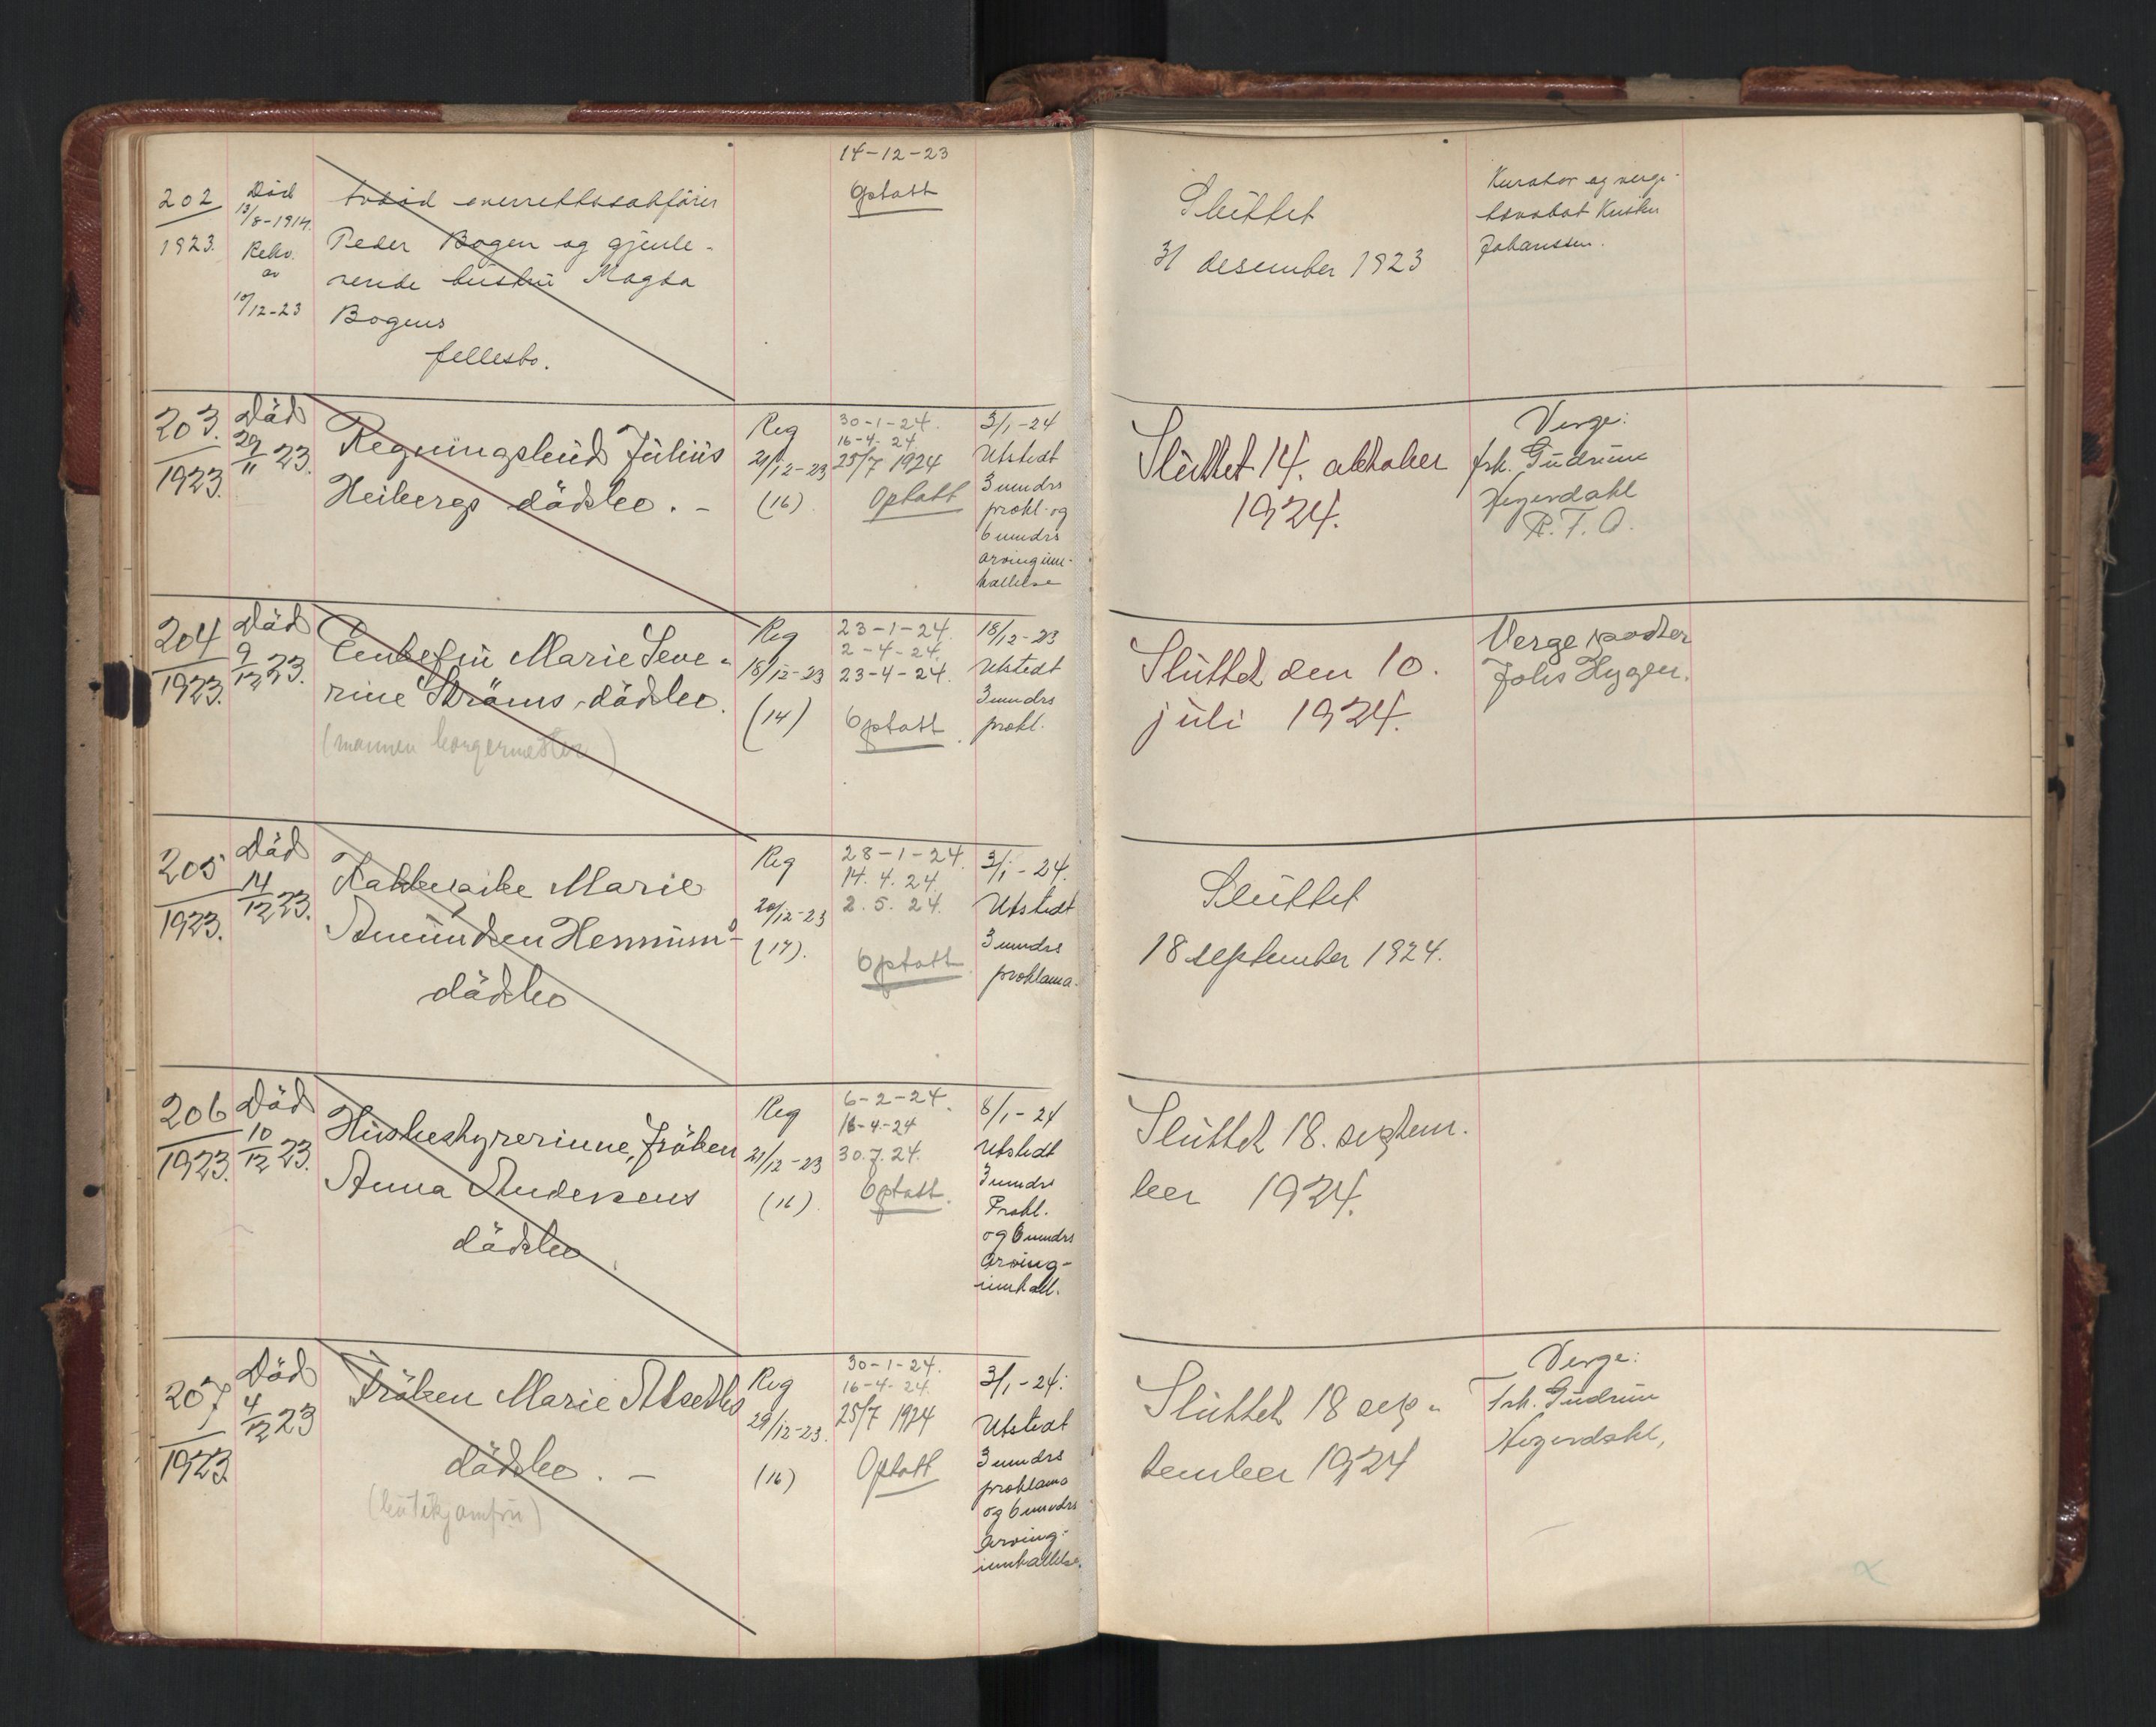 202
1923.
Död
13/8-1914.
Rekv.
av
10/12-23
avdöd overrettssakförer
Peder Bogen og gjenle-
vende hustru Magda
Bogens
fellesbo.
14-12-23
Optatt
Sluttet
31 desember 1923
Kurator og verge:
Johanssen.
203.
1923.
Död
29/11 23.
Regningsbud Julius
Heibergs dödsbo. -
Reg
21/12-23
(16).
30-1-24.
16-4-24
25/7 1924
Optatt
3/1-24
Utstedt
3 mndrs
prokl. og
6 mndrs
arvinginn-
kallelse
Sluttet 14. oktober
1924.
Verge:
frk. Gudrun
Hegerdahl
R.T.O.
204
1923.
Död
9/12 23.
Enkefru Marie Seve-
rine Ströms dödsbo.
(mannen borgermester)
Reg
18/12-23
(14)
23-1-24.
2-4-24.
23-4-24.
Optatt.
18/12-23
Utstedt
3 mndrs
prokl.
Sluttet den 10.
juli 1924.
Verge
Johs Hygen.
205
1923.
Död
14/12 23.
Marie
Amundsen Hennums
dödsbo
Reg
20/12-23
(17).
28-1-24.
14.4.24.
2.5.24.
Optatt.
3/1-24.
Utstedt
3 mndrs
proklama.
Sluttet
18 september 1924.
206
1923.
Död
10/12 23.
Husbestyrerinne, fröken
Anna Andersens
dödsbo
Reg
21/12-23
(16).
6-2-24.
16-4-24
30.7.24.
Optatt.
8/1-24
Utstedt
3 mndrs
Prokl.
og 6 mndrs
arving-
innkall.
Sluttet 18. septem-
ber 1924.
207
1923
Död
4/12 23
Fröken Marie Alseths
dödsbo. -
(butikjomfru)
Reg
29/12-23.
(16)
30-1-24.
16-4-24.
25/7 1924
Optatt
3/1-24.
Utstedt
3 mndrs
proklama
og 6 mndrs
arving-
innkallelse.
Sluttet 18 sep-
tember 1924
Verge:
Frk. Gudrun
Hegerdahl,